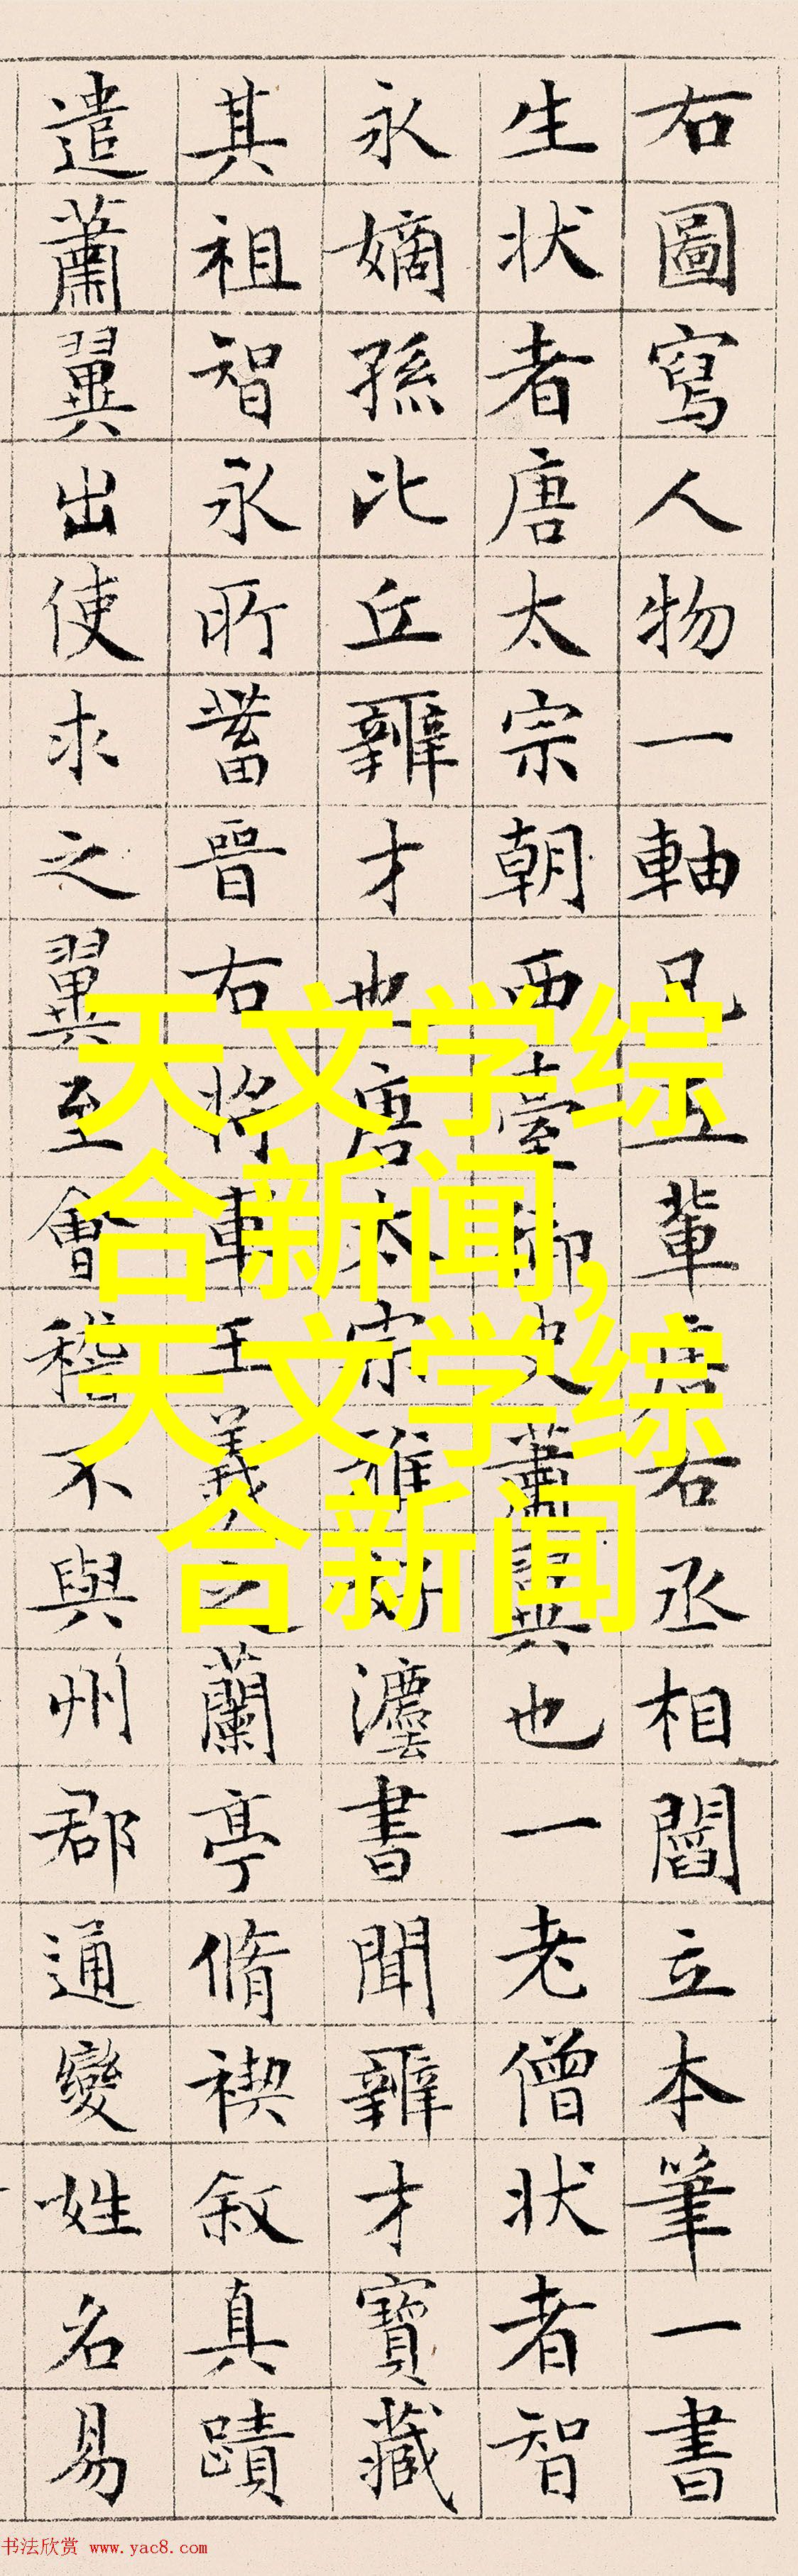 右圖寫人物一軸凡五輩唐右丞相閻立本筆一書
生状者唐太宗朝西臺御史蕭翼也一老僧状者智
永嫡孫比丘辯才也唐太宗雅好灋書聞辯才寶藏
其祖智永所蓄晉右將軍王羲之蘭亭脩禊叙真蹟
遣蕭翼出使求之翼至會稽不與州郡通變姓名易
天文学综
合新闻,
天文学综
合新闻
书法欣赏 www.yac8.com